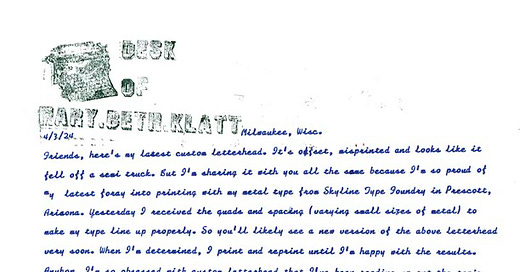 DESK
OF
MARY.BETH.KLATT
4/3/24 Milwaukee, Wisc.
Friends, here's my latest custom letterhead. It's offset, misprinted and looks like it
fell off a semi truck. But I'm sharing it with you all the same because I'm so proud of
my latest foray into printing with my metal type from Skyline Type Foundry in Prescott,
Arizona. Yesterday I received the quads and spacing (varying small sizes of metal) to
make my type line up properly. So you'll likely see a new version of the above letterhead
very soon. When I'm determined, I print and reprint until I'm happy with the results.
Anyhow, I'm so obsessed with custom letterhead that I've been reading up on the